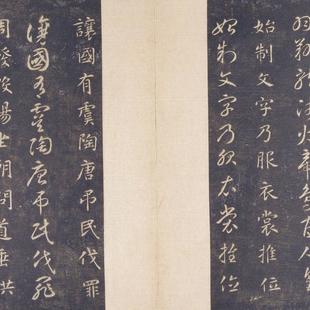 羽翔龍師火帝鳥官人皇
始制文字乃服衣裳推位
始制文字乃服衣裳推位
讓國有虞陶唐弔民伐罪
讓國有虞陶唐弔民伐罪
周發殷湯坐朝問道垂拱